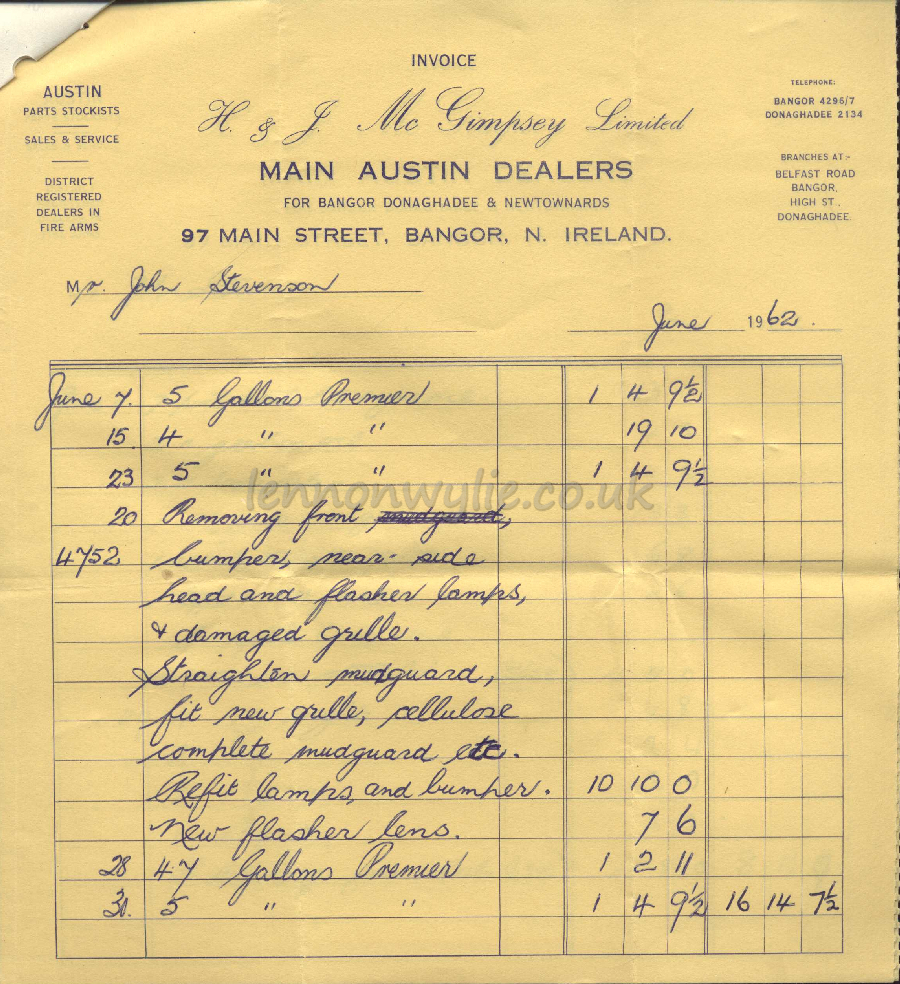 INVOICE
AUSTIN
PARTS STOCKISTS
SALES & SERVICE
DISTRICT
REGISTERED
DEALERS IN
FIRE ARMS
H. & J. McGimpsey Limited
MAIN AUSTIN DEALERS
FOR BANGOR DONAGHADEE & NEWTOWNARDS
97 MAIN STREET, BANGOR, N. IRELAND.
TELEPHONE:
BANGOR 4296/7
DONAGHADEE 2134
BRANCHES AT:-
BELFAST ROAD
BANGOR,
HIGH ST.,
DONAGHADEE.
Mr. John Stevenson
June 1962.
June 7. 5 Gallons Premier 1 4 9½
15. 4 " " 19 10
23 5 " " 1 4 9½
20 Removing front mudguard,
4752 bumper, near-side
head and flasher lamps,
& damaged grille.
Straighten mudguard,
fit new grille, cellulose
complete mudguard etc.
Refit lamps, and bumper. 10 10 0
New flasher lens. 7 6
28 47 Gallons Premier 1 2 11
30. 5 " " 1 4 9½ 16 14 7½
lennonwylie.co.uk